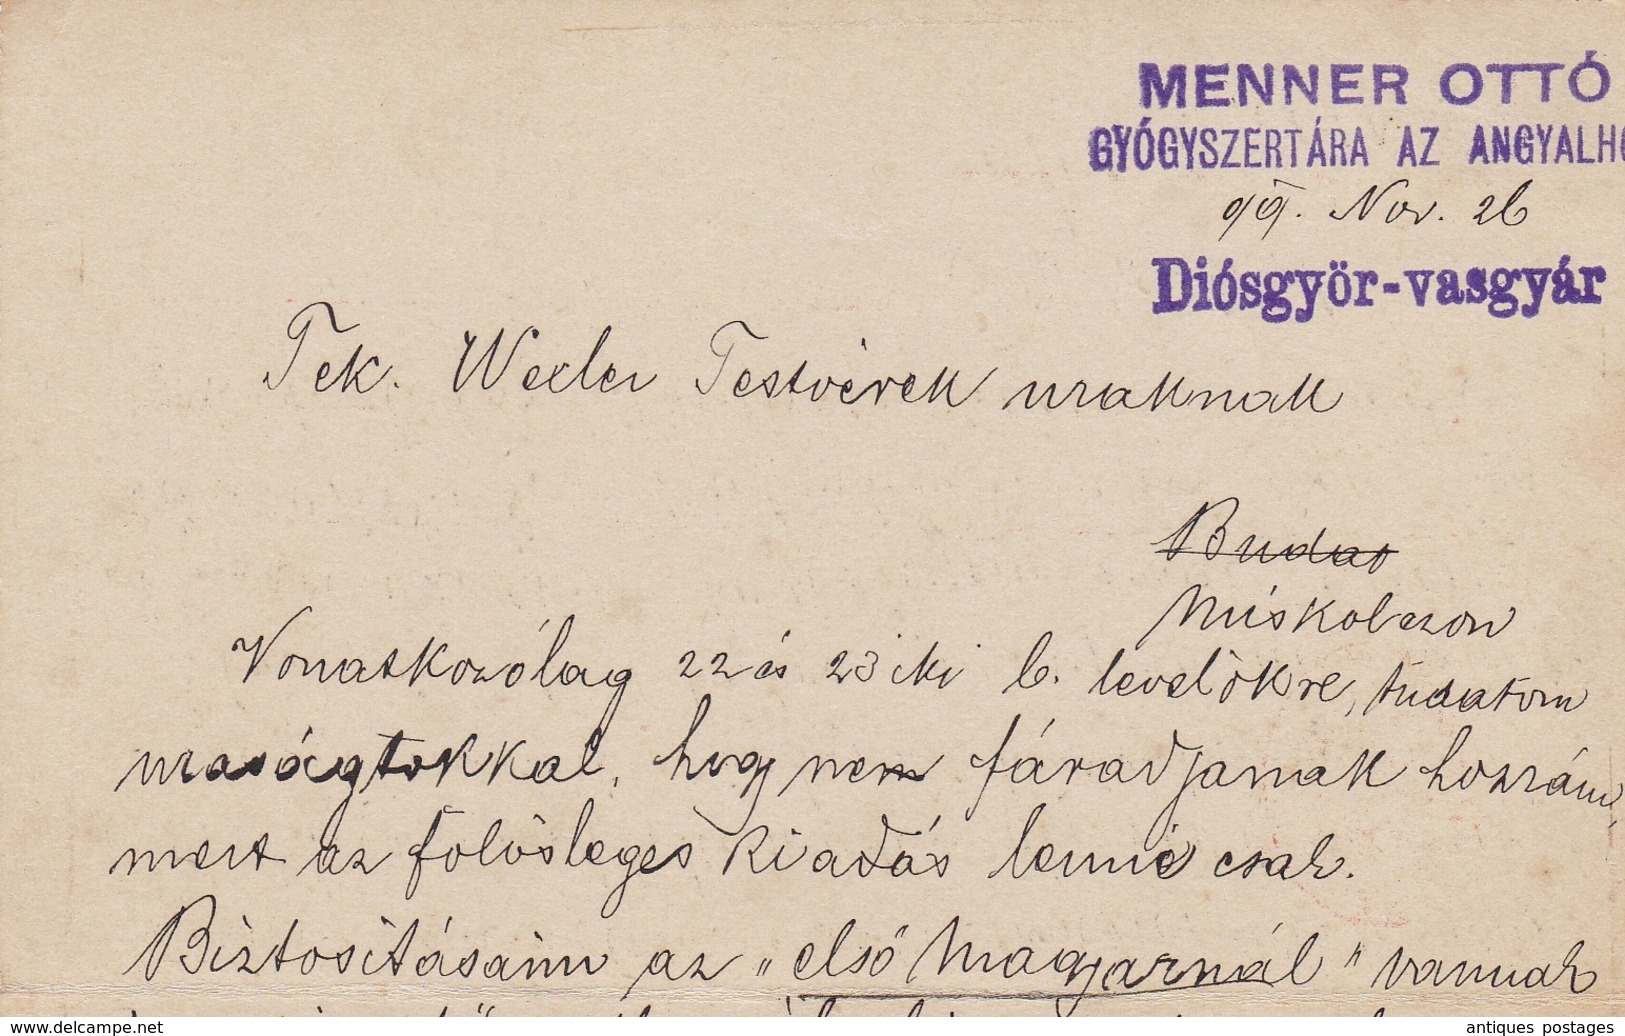 MENNER OTTÓ
GYÓGYSZERTÁRA AZ ANGYALHO
Nov. 26
Diósgyör-vasgyár
Tek. Wexler Testvérek uraknak
Budap
Miskolczon
Vonatkozólag 22 és 23 iki b. levelökre, tudatom
uraságtokkal, hogy nem fáradjanak hozzám,
mert az fölösleges kiadás lenne csak.
Biztosításaim az „első Magyarnál" vannak
antiques postages
www.delcampe.net